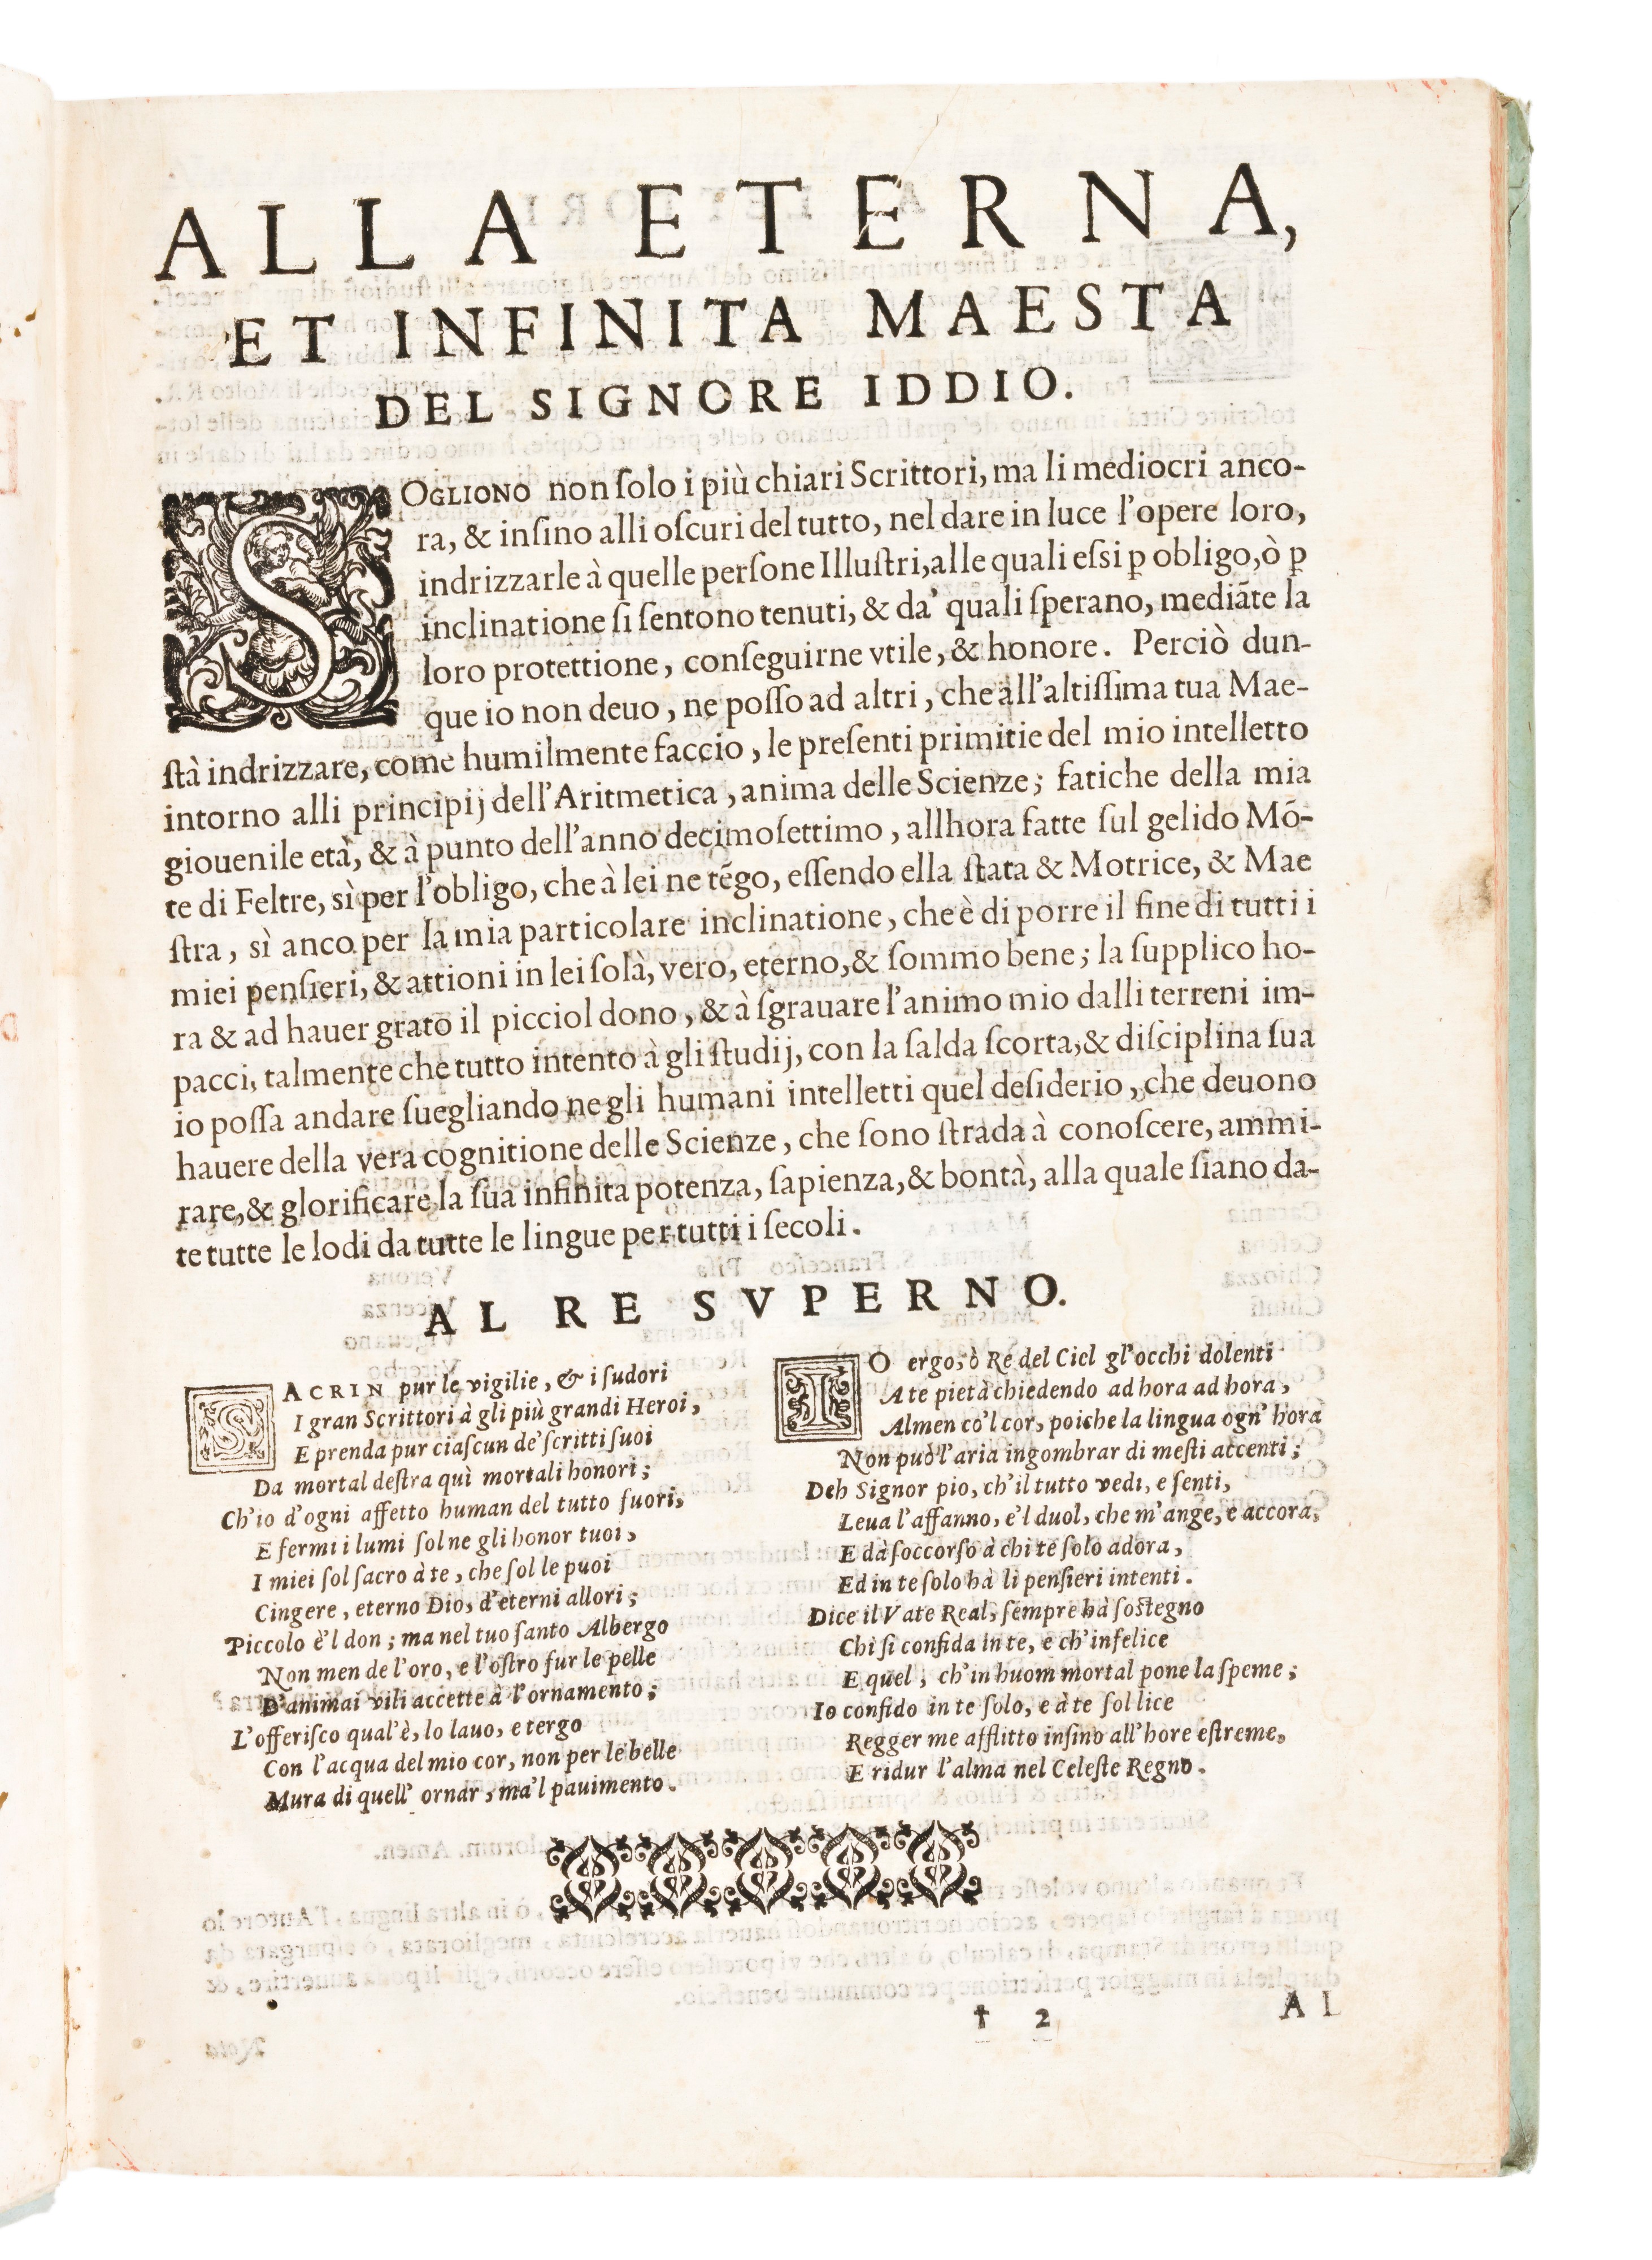 ALLA ETERNA,
ET INFINITA MAESTA
DEL SIGNORE IDDIO.
SOGLIONO non ſolo i più chiari Scrittori, ma li mediocri anco-
ra, & inſino alli oſcuri del tutto, nel dare in luce l'opere loro,
indrizzarle à quelle perſone Illuſtri, alle quali eſsi ꝑ obligo, ò ꝑ
inclinatione ſi ſentono tenuti, & da' quali ſperano, mediāte la
loro protettione, conſeguirne vtile, & honore. Perciò dun-
que io non deuo, ne poſſo ad altri, che all'altiſſima tua Mae-
ſtà indrizzare, come humilmente faccio, le preſenti primitie del mio intelletto
intorno alli principij dell'Aritmetica, anima delle Scienze; fatiche della mia
giouenile età, & à punto dell'anno decimoſettimo, allhora fatte ſul gelido Mō-
te di Feltre, sì per l'obligo, che à lei ne tēgo, eſſendo ella ſtata & Motrice, & Mae
ſtra, sì anco per la mia particolare inclinatione, che è di porre il fine di tutti i
miei penſieri, & attioni in lei ſolà, vero, eterno, & ſommo bene; la ſupplico ho-
ra & ad hauer grato il picciol dono, & à ſgrauare l'animo mio dalli terreni im-
pacci, talmente che tutto intento à gli ſtudij, con la ſalda ſcorta, & diſciplina ſua
io poſſa andare ſuegliando negli humani intelletti quel deſiderio, che deuono
hauere della vera cognitione delle Scienze, che ſono ſtrada à conoſcere, ammi-
rare, & glorificare la ſua infinita potenza, ſapienza, & bontà, alla quale ſiano da-
te tutte le lodi da tutte le lingue per tutti i ſecoli.
AL RE SVPERNO.
SACRIN pur le vigilie, & i ſudori
I gran Scrittori à gli più grandi Heroi,
E prenda pur ciaſcun de' ſcritti ſuoi
Da mortal deſtra quì mortali honori;
Ch'io d'ogni affetto human del tutto fuori,
E fermi i lumi ſol ne gli honor tuoi,
I miei ſol ſacro à te, che ſol le puoi
Cingere, eterno Dio, d'eterni allori;
Piccolo è'l don; ma nel tuo ſanto Albergo
Non men de l'oro, e l'oſtro fur le pelle
D'animai vili accette à l'ornamento;
L'offeriſco qual'è, lo lauo, e tergo
Con l'acqua del mio cor, non per le belle
Mura di quell' ornar, ma'l pauimento.
IO ergo, ò Re del Ciel gl'occhi dolenti
A te pietà chiedendo ad hora ad hora,
Almen co'l cor, poiche la lingua ogn' hora
Non può l'aria ingombrar di meſti accenti;
Deh Signor pio, ch'il tutto vedi, e ſenti,
Leua l'affanno, e'l duol, che m'ange, e accora,
E dà ſoccorſo à chi te ſolo adora,
Ed in te ſolo hà li penſieri intenti.
Dice il Vate Real, ſempre hà ſoſtegno
Chi ſi confida in te, e ch'infelice
E quel, ch'in huom mortal pone la ſpeme;
Io confido in te ſolo, e à te ſol lice
Regger me afflitto inſino all'hore eſtreme,
E ridur l'alma nel Celeſte Regno.
† 2
AL